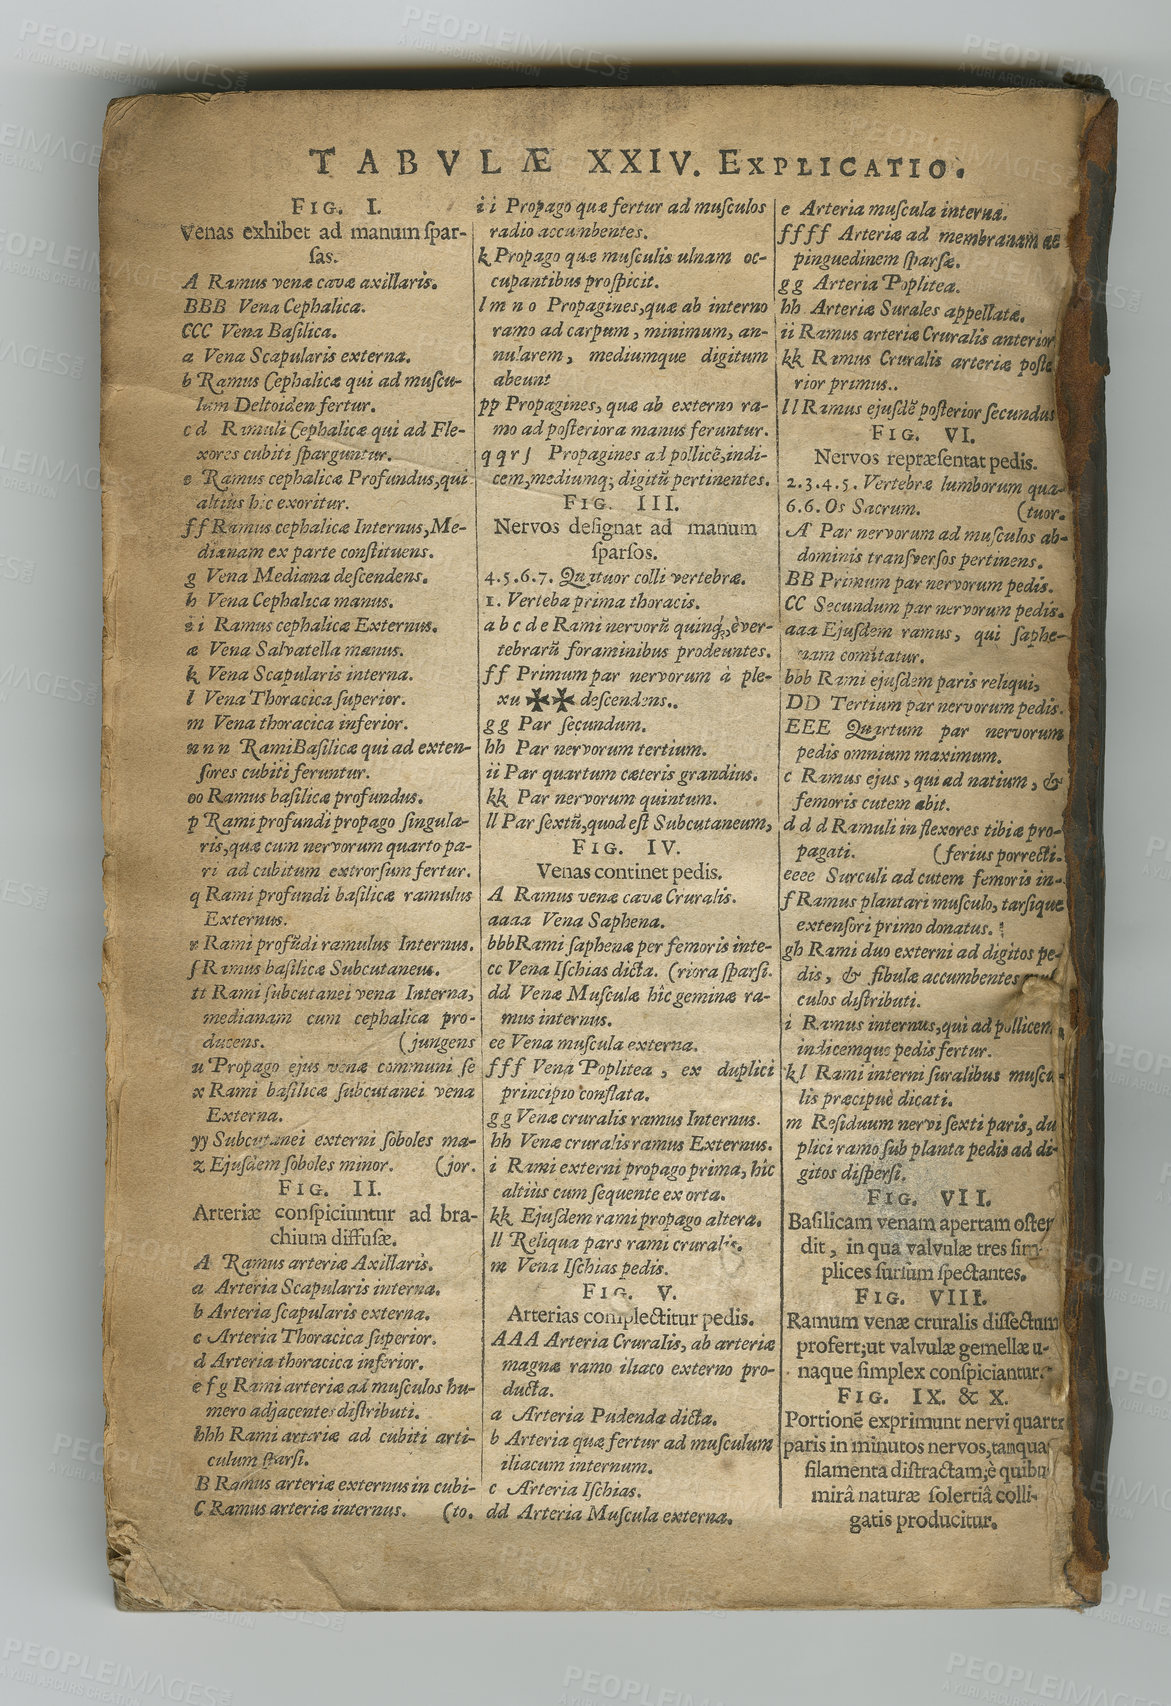 TABVLÆ XXIV. EXPLICATIO.
FIG. I.
Venas exhibet ad manum ſpar-
ſas.
A Ramus venæ cavæ axillaris.
BBB Vena Cephalica.
CCC Vena Baſilica.
a Vena Scapularis externa.
b Ramus Cephalicæ qui ad muſcu-
lum Deltoiden fertur.
c d Ramuli Cephalicæ qui ad Fle-
xores cubiti ſparguntur.
e Ramus cephalicæ Profundus, qui
altiùs hic exoritur.
f f Ramus cephalicæ Internus, Me-
dianam ex parte conſtituens.
g Vena Mediana deſcendens.
h Vena Cephalica manus.
i i Ramus cephalicæ Externus.
æ Vena Salvatella manus.
k Vena Scapularis interna.
l Vena Thoracica ſuperior.
m Vena thoracica inferior.
n n n Rami Baſilicæ qui ad exten-
ſores cubiti feruntur.
oo Ramus baſilicæ profundus.
p Rami profundi propago ſingula-
ris, quæ cum nervorum quarto pa-
ri ad cubitum extrorſum fertur.
q Rami profundi baſilicæ ramulus
Externus.
r Rami profūdi ramulus Internus.
ſ Ramus baſilicæ Subcutaneus.
tt Rami ſubcutanei vena Interna,
medianam cum cephalica pro-
ducens. (jungens
u Propago ejus venæ communi ſe
x Rami baſilicæ ſubcutanei vena
Externa.
yy Subcutanei externi ſoboles ma-
z Ejuſdem ſoboles minor. (jor.
FIG. II.
Arteriæ conſpiciuntur ad bra-
chium diffuſæ.
A Ramus arteriæ Axillaris.
a Arteria Scapularis interna.
b Arteria ſcapularis externa.
c Arteria Thoracica ſuperior.
d Arteria thoracica inferior.
e f g Rami arteriæ ad muſculos hu-
mero adjacentes diſtributi.
hhh Rami arteriæ ad cubiti arti-
culum ſparſi.
B Ramus arteriæ externus in cubi-
C Ramus arteriæ internus. (to.
i i Propago quæ fertur ad muſculos
radio accumbentes.
k Propago quæ muſculis ulnam oc-
cupantibus proſpicit.
l m n o Propagines, quæ ab interno
ramo ad carpum, minimum, an-
nularem, mediumque digitum
abeunt
pp Propagines, quæ ab externo ra-
mo ad poſteriora manus feruntur.
q q r ſ Propagines ad pollicē, indi-
cem, mediumq; digitū pertinentes.
FIG. III.
Nervos deſignat ad manum
ſparſos.
4.5.6.7. Quatuor colli vertebræ.
1. Verteba prima thoracis.
a b c d e Rami nervorū quinq, è ver-
tebrarū foraminibus prodeuntes.
f f Primum par nervorum à ple-
xu ✠✠ deſcendens..
g g Par ſecundum.
hh Par nervorum tertium.
ii Par quartum cæteris grandius.
kk Par nervorum quintum.
ll Par ſextū, quod eſt Subcutaneum,
FIG. IV.
Venas continet pedis.
A Ramus venæ cavæ Cruralis.
aaaa Vena Saphena.
bbb Rami ſaphenæ per femoris inte-
cc Vena Iſchias dicta. (riora ſparſi.
dd Venæ Muſculæ hîc geminæ ra-
mus internus.
ee Vena muſcula externa.
f f f Vena Poplitea, ex duplici
principio conflata.
g g Venæ cruralis ramus Internus.
hh Venæ cruralis ramus Externus.
i Rami externi propago prima, hîc
altiùs cum ſequente ex orta.
kk Ejuſdem rami propago altera.
ll Reliqua pars rami cruralis.
m Vena Iſchias pedis.
FIG. V.
Arterias complectitur pedis.
AAA Arteria Cruralis, ab arteriæ
magnæ ramo iliaco externo pro-
ducta.
a Arteria Pudenda dicta.
b Arteria quæ fertur ad muſculum
iliacum internum.
c Arteria Iſchias.
dd Arteria Muſcula externa.
e Arteria muſcula interna.
f f f f Arteriæ ad membranam ac
pinguedinem ſparſæ.
g g Arteria Poplitea.
hh Arteriæ Surales appellatæ.
ii Ramus arteriæ Cruralis anterior
kk Ramus Cruralis arteriæ poſte
rior primus..
l l Ramus ejuſdē poſterior ſecundus
FIG. VI.
Nervos repræſentat pedis.
2.3.4.5. Vertebræ lumborum qua-
6.6. Os Sacrum. (tuor.
A Par nervorum ad muſculos ab-
dominis tranſverſos pertinens.
BB Primum par nervorum pedis.
CC Secundum par nervorum pedis.
aaa Ejuſdem ramus, qui ſaphe-
nam comitatur.
bbb Rami ejuſdem paris reliqui,
DD Tertium par nervorum pedis.
EEE Quartum par nervorum
pedis omnium maximum.
c Ramus ejus, qui ad natium, &
femoris cutem abit.
d d d Ramuli in flexores tibiæ pro-
pagati. (ferius porrecti.
eeee Surculi ad cutem femoris in-
f Ramus plantari muſculo, tarſique
extenſori primo donatus.
gh Rami duo externi ad digitos pe-
dis, & fibulæ accumbentes
culos diſtributi.
i Ramus internus, qui ad pollicem
indicemque pedis fertur.
k l Rami interni ſuralibus muſcu-
lis præcipuè dicati.
m Reſiduum nervi ſexti paris, du
plici ramo ſub planta pedis ad di-
gitos diſperſi.
FIG. VII.
Baſilicam venam apertam oſten
dit, in qua valvulæ tres ſim-
plices ſurſum ſpectantes.
FIG. VIII.
Ramum venæ cruralis diſſectum
profert; ut valvulæ gemellæ u-
naque ſimplex conſpiciantur.
FIG. IX. & X.
Portionē exprimunt nervi quarti
paris in minutos nervos, tanqua
filamenta diſtractam; è quibu
mirâ naturæ ſolertiâ colli-
gatis producitur.